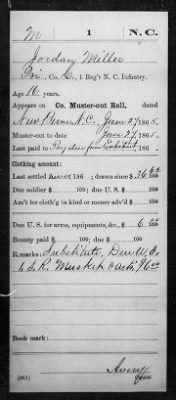 M 1 N.C.
Jordan Miller
Pvt., Co. C, 1 Reg't N. C. Infantry.
Age 16 years.
Appears on Co. Muster-out Roll, dated
New Berne N.C., June 27, 1865.
Muster-out to date June 27, 186 5.
Last paid to Pay due from Enlistment, 186 .
Clothing account:
Last settled never, 186 ; drawn since $ 36 100
Due soldier $ 100; due U. S. $ 100
Am't for cloth'g in kind or money adv'd $ 100
Due U. S. for arms, equipments, &c., $ 6 00 100
Bounty paid $ 100; due $ 100
Remarks: Substitute, Due U.S.
Musket $6 00
Book mark:
(861)